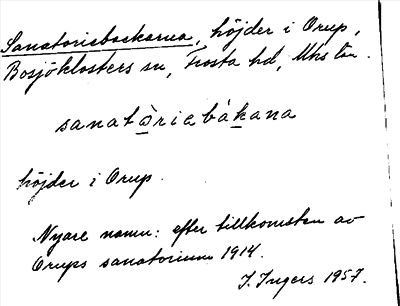 Sanatoriebackarna, höjder i Orup,
Bosjöklosters sn, Frosta hd, Mhs län.
sanatòriebàkana
höjder i Orup.
Nyare namn: efter tillkomsten av
Orups sanatorium 1914.
I. Ingers 1957.